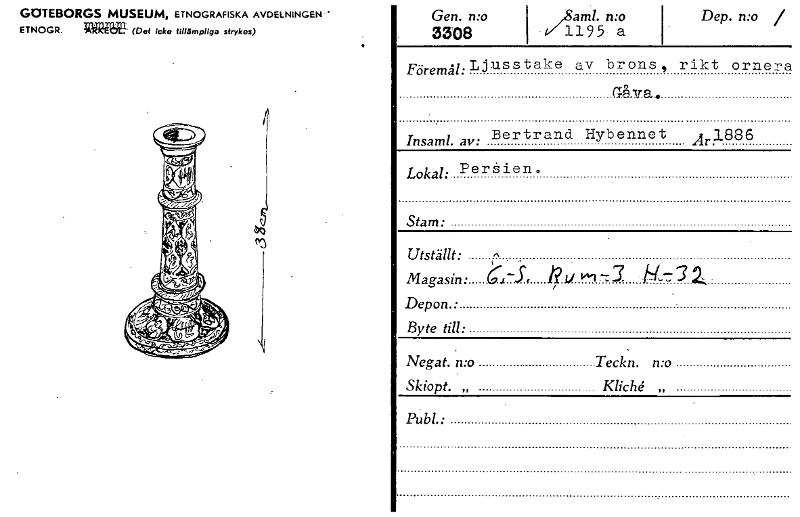 GÖTEBORGS MUSEUM, ETNOGRAFISKA AVDELNINGEN
ETNOGR. ARKEOL. (Det icke tillämpliga strykes)
38cm
Gen. n:o Saml. n:o Dep. n:o /
3308 ✓ 1195 a
Föremål: Ljusstake av brons, rikt ornera
Gåva.
Insaml. av: Bertrand Hybennet År: 1886
Lokal: Persien.
Stam:
Utställt:
Magasin: G.-S. Rum-3 H-32
Depon.:
Byte till:
Negat. n:o Teckn. n:o
Skiopt. „ Kliché „
Publ.: